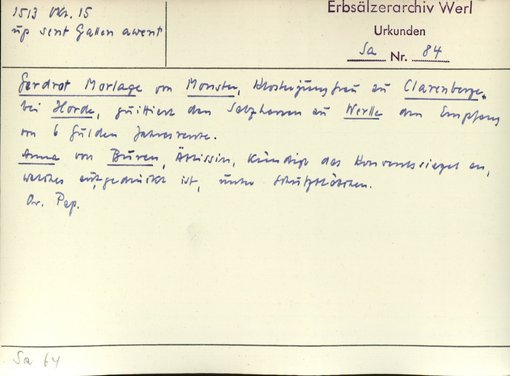 1513 Okt. 15
up sent Gallen avent
Erbsälzerarchiv Werl
Urkunden
Sa Nr. 84
Gerdrot Morlage von Monster, Klosterjungfrau zu Clarenberge
bei Horde, quittiert den Salzherren zu Werlle den Empfang
von 6 Gulden Jahresrente.
Anna von Buren, Äbtissin, kündigt das Konventssiegel an,
welches aufgedrückt ist, unter Schutzblättchen.
Or. Pap.
Sa 64